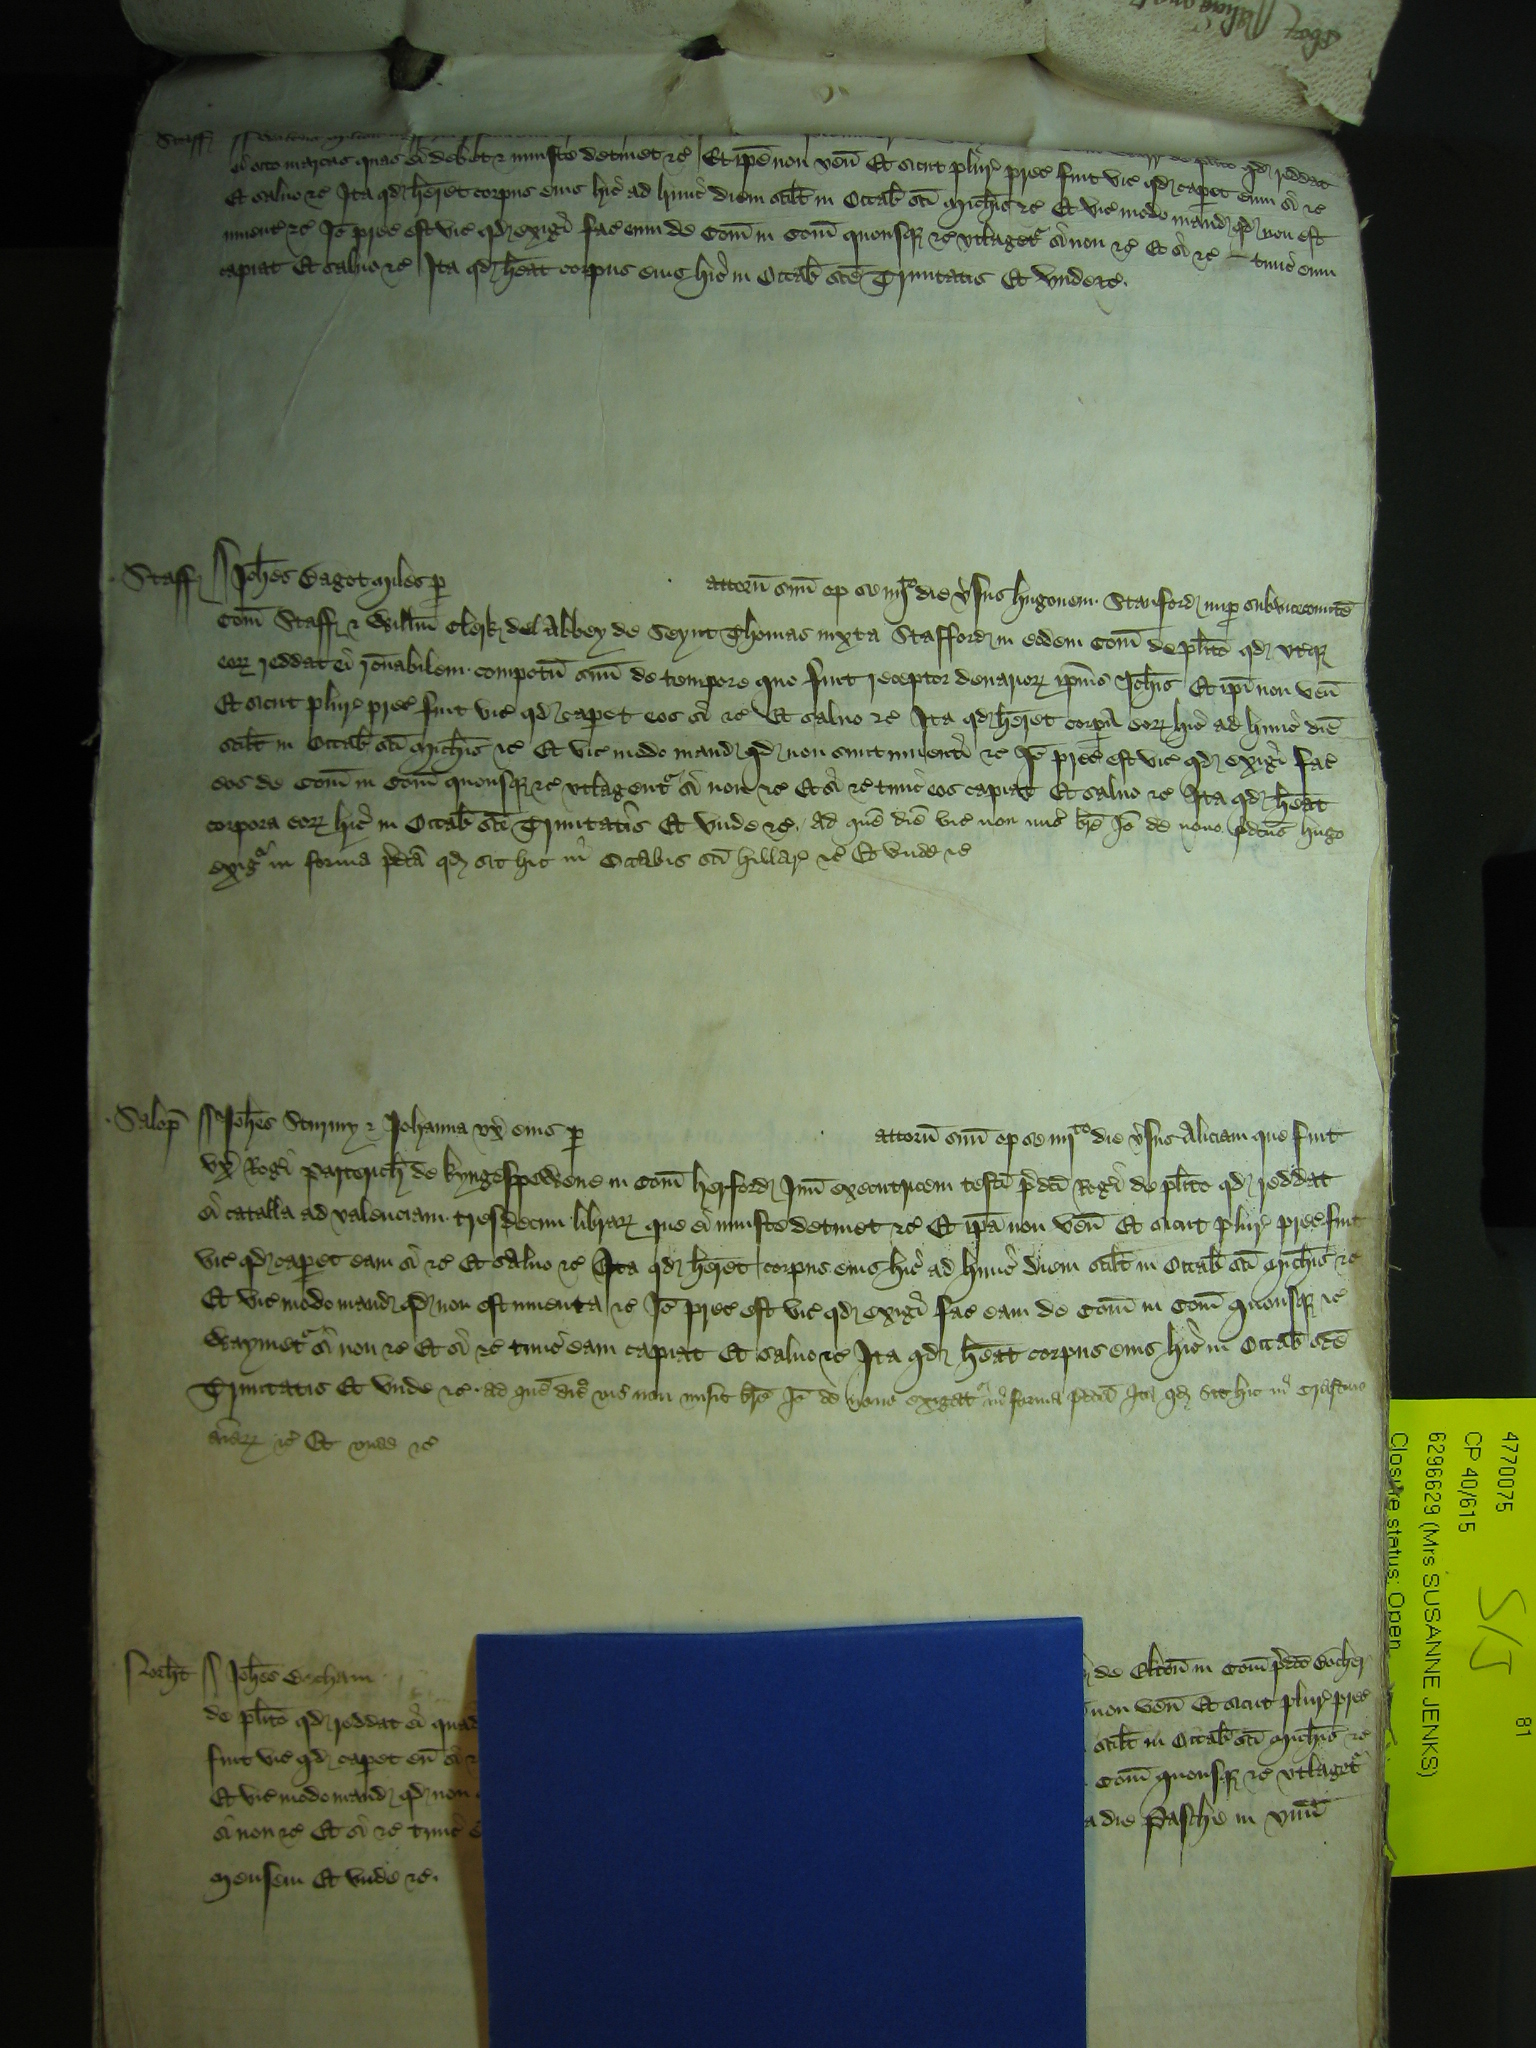 Staff
ei octo marcas quas ei debet & iniuste detinet &c Et ipe non ven Et sicut plur prec fuit vic qd caperet eum si &c
Et salvo &c Ita qd heret corpus eius hic ad hunc diem scilt in Octab sci Michis &c Et vic modo mand qd non est
invent &c Io prec est vic qd exigi fac eum de Com in Com quousq &c utlaget si non &c Et si &c tunc eum
capiat Et salvo &c Ita qd heat corpus eius hic in Octab sce Trinitatis Et unde &c.
Staff Johes Bagot miles p attorn suu op se iiij to die versus Hugonem Stanford nup subvicecomite
Com Staff & Willm Clerk del Abbey de Seynt Thomas iuxta Stafford in eodem Com de plito qd uterq
eor reddat ei ronabilem compotu suu de tempore quo fuit receptor denarior ipius Johis Et ipi non ven
Et sicut plur prec fuit vic qd caperet eos si &c Et salvo &c Ita qd heret corpa eor hic ad hunc die
scilt in Octab sci Michis &c Et vic modo mand qd non sunt inventi &c Io prec est vic qd exigi fac
eos de Com in Com quousq &c utlagent si non &c Et si &c tunc eos capiat Et salvo &c Ita qd heat
corpora eor hic in Octab sce Trinitatis Et unde &c. Ad que die vic non mis bre Io de novo pdcus Hugo
exig in forma pdca qd sit hic in Octabis sci Hillar &c Et unde &c
Salop Johes Sturmy & Johanna ux eius p attorn suu op se iiij to die versus Aliciam que fuit
ux Rogi Partrich de Kyngespewene in Com Herford Jun executricem testi pdci Rogi de plito qd reddat
ei catalla ad valenciam tresdecim librar que ei iniuste detinet &c Et ipa non ven Et sicut plur prec fuit
vic qd caperet eam si &c Et salvo &c Ita qd heret corpus eius hic ad hunc diem scilt in Octab sci Michis &c
Et vic modo mand qd non est inventa &c Io prec est vic qd exigi fac eam de Com in Com quousq &c
Wayviet si non &c Et si &c tunc eam capiat Et salvo &c Ita qd heat corpus eius hic in Octab sce
Trinitatis Et unde &c. Ad que die vic non misit bre Io de novo exigat in forma pdca Ita qd sit hic in Crastino
aiar &c Et unde &c
Norht Johes Becham de Elton in Com pdco Bocher
de plito qd reddat ei quad non ven Et sicut plur prec
fuit vic qd caperet eu si scilt in Octab sci Michis &c
Et vic modo mand qd non Com quousq &c utlaget
si non &c Et si &c tunc a die Pasche in unu
mensem Et unde &c.
4770075 81
CP 40/615 S/J
6296629 (Mrs SUSANNE JENKS)
Closure status: Open